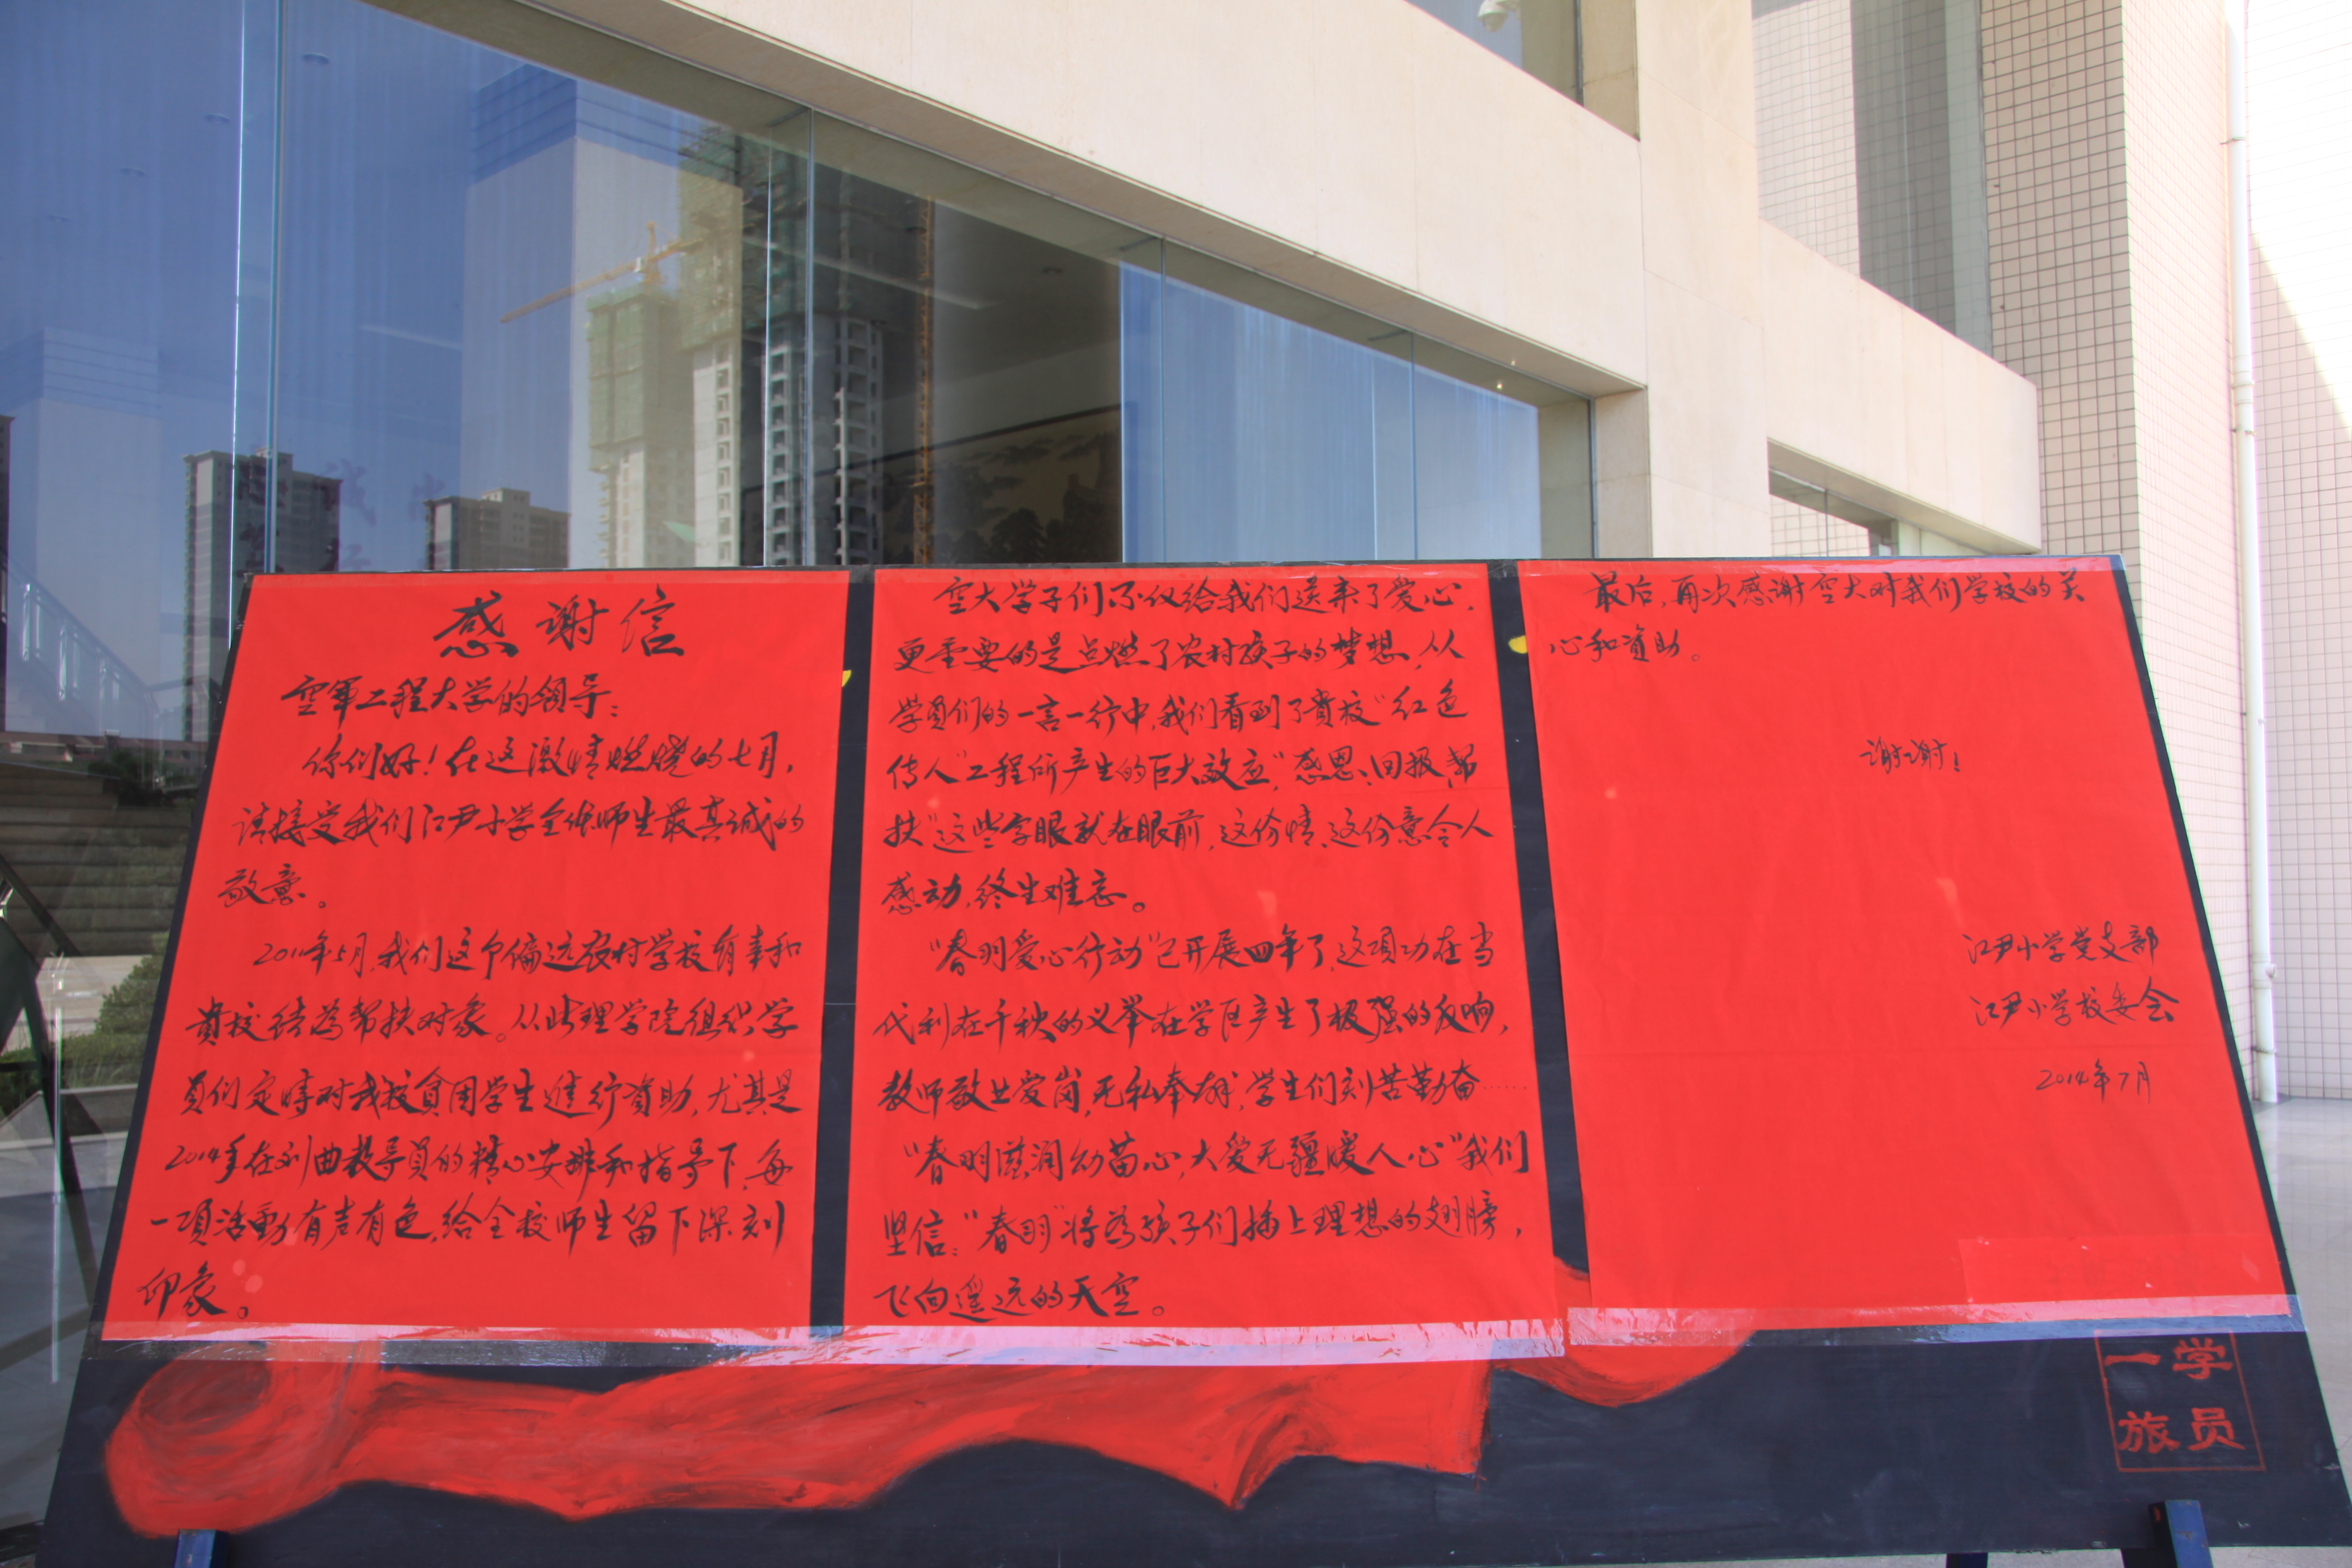 感谢信
空軍工程大学的领导：
你们好！在这激情燃烧的七月，
请接受我们江尹小学全体师生最真诚的
敬意。
2011年5月，我们这个偏远农村学校有幸和
貴校结為帮扶对象。从此理学院组织学
员们定時对我校貧困学生進行資助，尤其是
2014年在刘曲教导員的精心安排和指导下，每
一項活動有声有色，给全校师生留下深刻
印象。
空大学子们不仅给我们送来了爱心，
更重要的是点燃了农村孩子的梦想，从
学員们的一言一行中，我们看到了貴校“红色
传人”工程所产生的巨大效应，“感恩、回报、帮
扶”这些字眼就在眼前，这份情、这份意令人
感动，终生难忘。
“春明爱心行动”已开展四年了，这項功在当
代利在千秋的义举在学区产生了极强的反响，
教师敬业爱岗，无私奉献，学生们刻苦勤奋……
“春明滋润幼苗心，大爱无疆暖人心”我们
坚信：“春明”将為孩子们插上理想的翅膀，
飞向遥远的天空。
最后，再次感谢空大对我们学校的关
心和資助。
谢谢！
江尹小学党支部
江尹小学校委会
2014年7月
一学
旅员